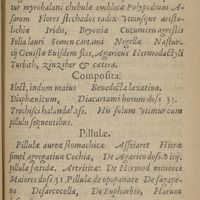 tur myrobalani chebulæ emblicæ Polypodium A-
sarum Flores stechados radix Vtriusque aristo-
lochiæ Iridis, Bryoniæ Cucumeris agrestis
Folia lauri Semen cartami Nigellæ Nastur-
tij Genistæ Eiusdem flos, Agaricus Hermodactyli
Turbith, zinziber & cætera.
Composita.
Elect, indum maius Benedicta laxatiua.
Diaphœnicum, Diacartami horum dosis 3 5.
Trochisci halandal. 
pillulæ sequentibus.
Pillulæ.
Pillulæ aureæ stomachicæ Affaiaret Hieræ
simpl. agregatiuæ Cochiæ, De Agarico dosis
pillulæ fœtidæ. Artriticæ De Hermod minores
Maiores dosis 3 1. Pillulæ de opopanace De sagape-
no De sarcocolla, De Euphorbio, Harum